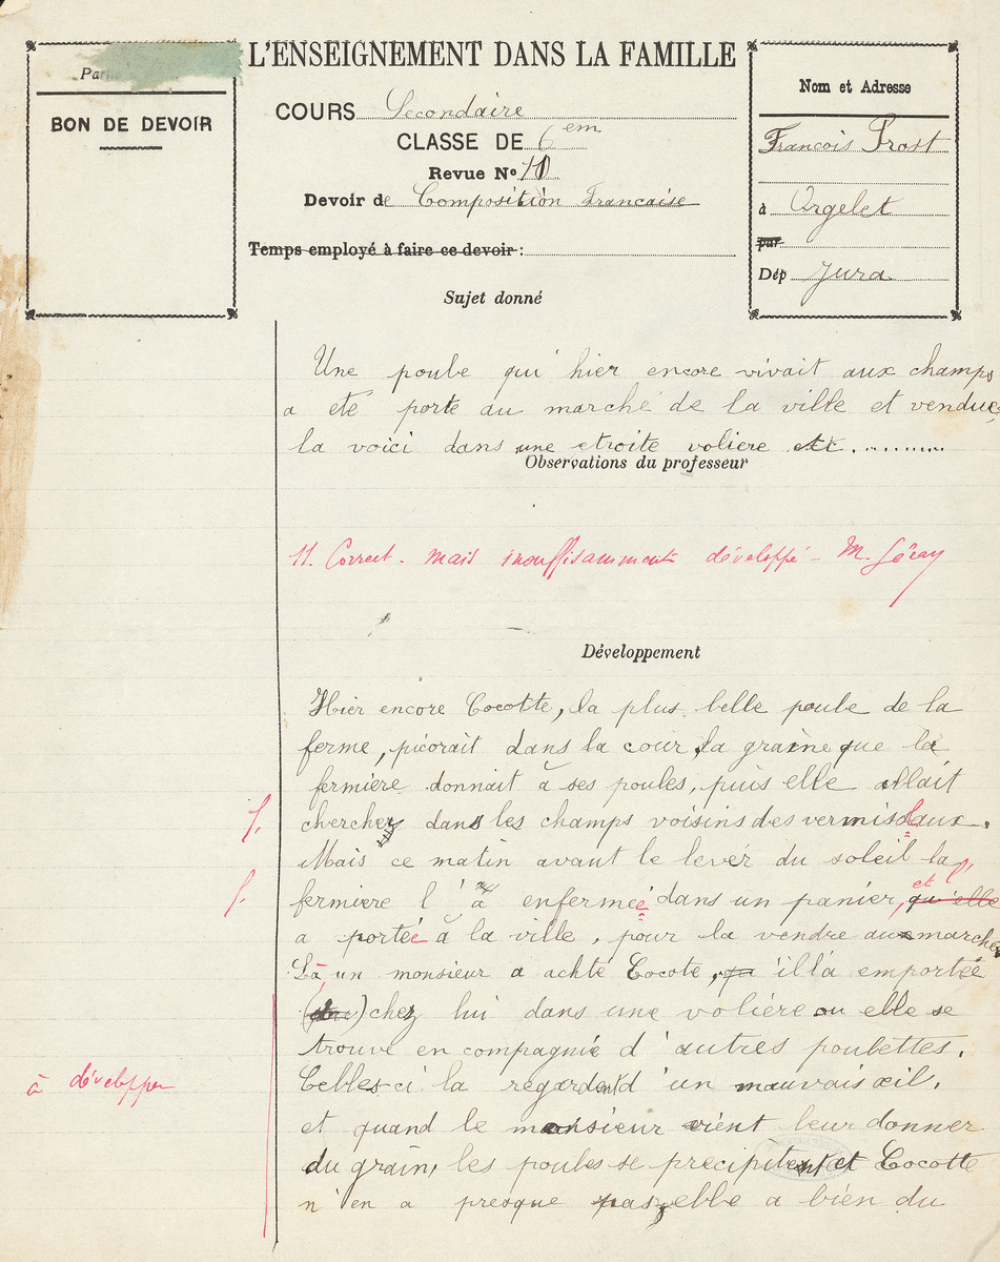 L'ENSEIGNEMENT DANS LA FAMILLE
BON DE DEVOIR
COURS Secondaire
CLASSE DE 6em
Revue No 10
Devoir de Composition Francaise
Temps employé à faire ce devoir :
Nom et Adresse
Francois Prost
à Orgelet
par
Dép Jura
Sujet donné
Une poule qui hier encore vivait aux champs
a eté porte au marché de la ville et vendue,
la voici dans une etroite voliere etc..........
Observations du professeur
11. Correct - mais insuffisamment développé - M. Géray
Développement
Hier encore Cocotte, la plus belle poule de la
ferme, picorait dans la cour, la graine que la
fermière donnait à ses poules, puis elle allait
chercher dans les champs voisins des vermisseaux.
Mais ce matin avant le lever du soleil la
fermiere l'a enfermée dans un panier, et qu'elle
a portée à la ville, pour la vendre au marché
Là un monsieur a achté Cocote, il l'a emportée
chez lui dans une volière ou elle se
trouve en compagnie d'autres poulettes.
Celles-ci la regardent d'un mauvais œil.
à développer
et quand le monsieur vient leur donner
du grain, les poules se precipitent et Cocotte
n'en a presque pas, elle a bien du